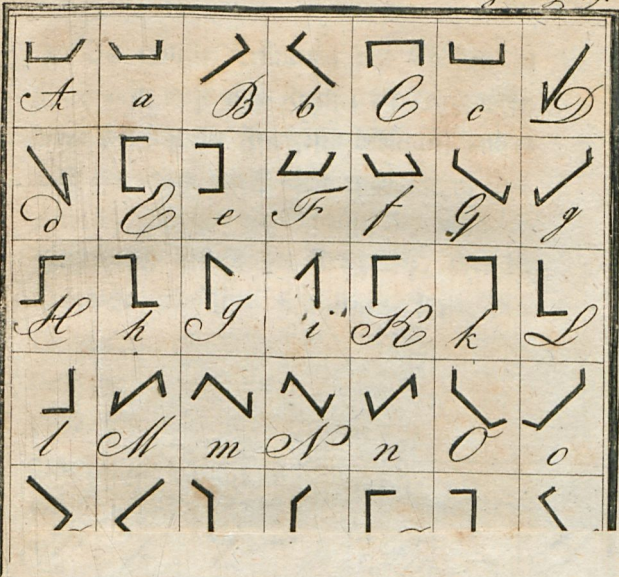 A a B b C c D
d E e F f G g
H h I i K k L
l M m N n O o